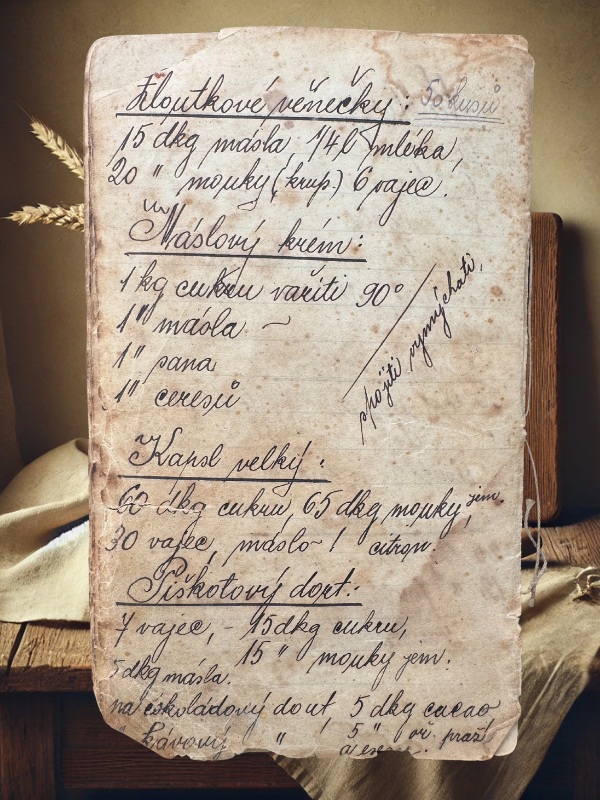 Žloutkové věnečky: 50 kusů
15 dkg másla 1/4 l mléka,
20 " mouky (krup.) 6 vajec.
Máslový krém:
1 kg cukru vařiti 90°
1 " másla
1 " sana
1 " ceresů
spojiti vymýchati.
Kapsl velký:
60 dkg cukru, 65 dkg mouky jem.
30 vajec, máslo 1 citron.
Piškotový dort:
7 vajec, - 15 dkg cukru,
15 " mouky jem.
5 dkg másla.
na čokoládový dort, 5 dkg cacao
kávový " 5 " oř. praž